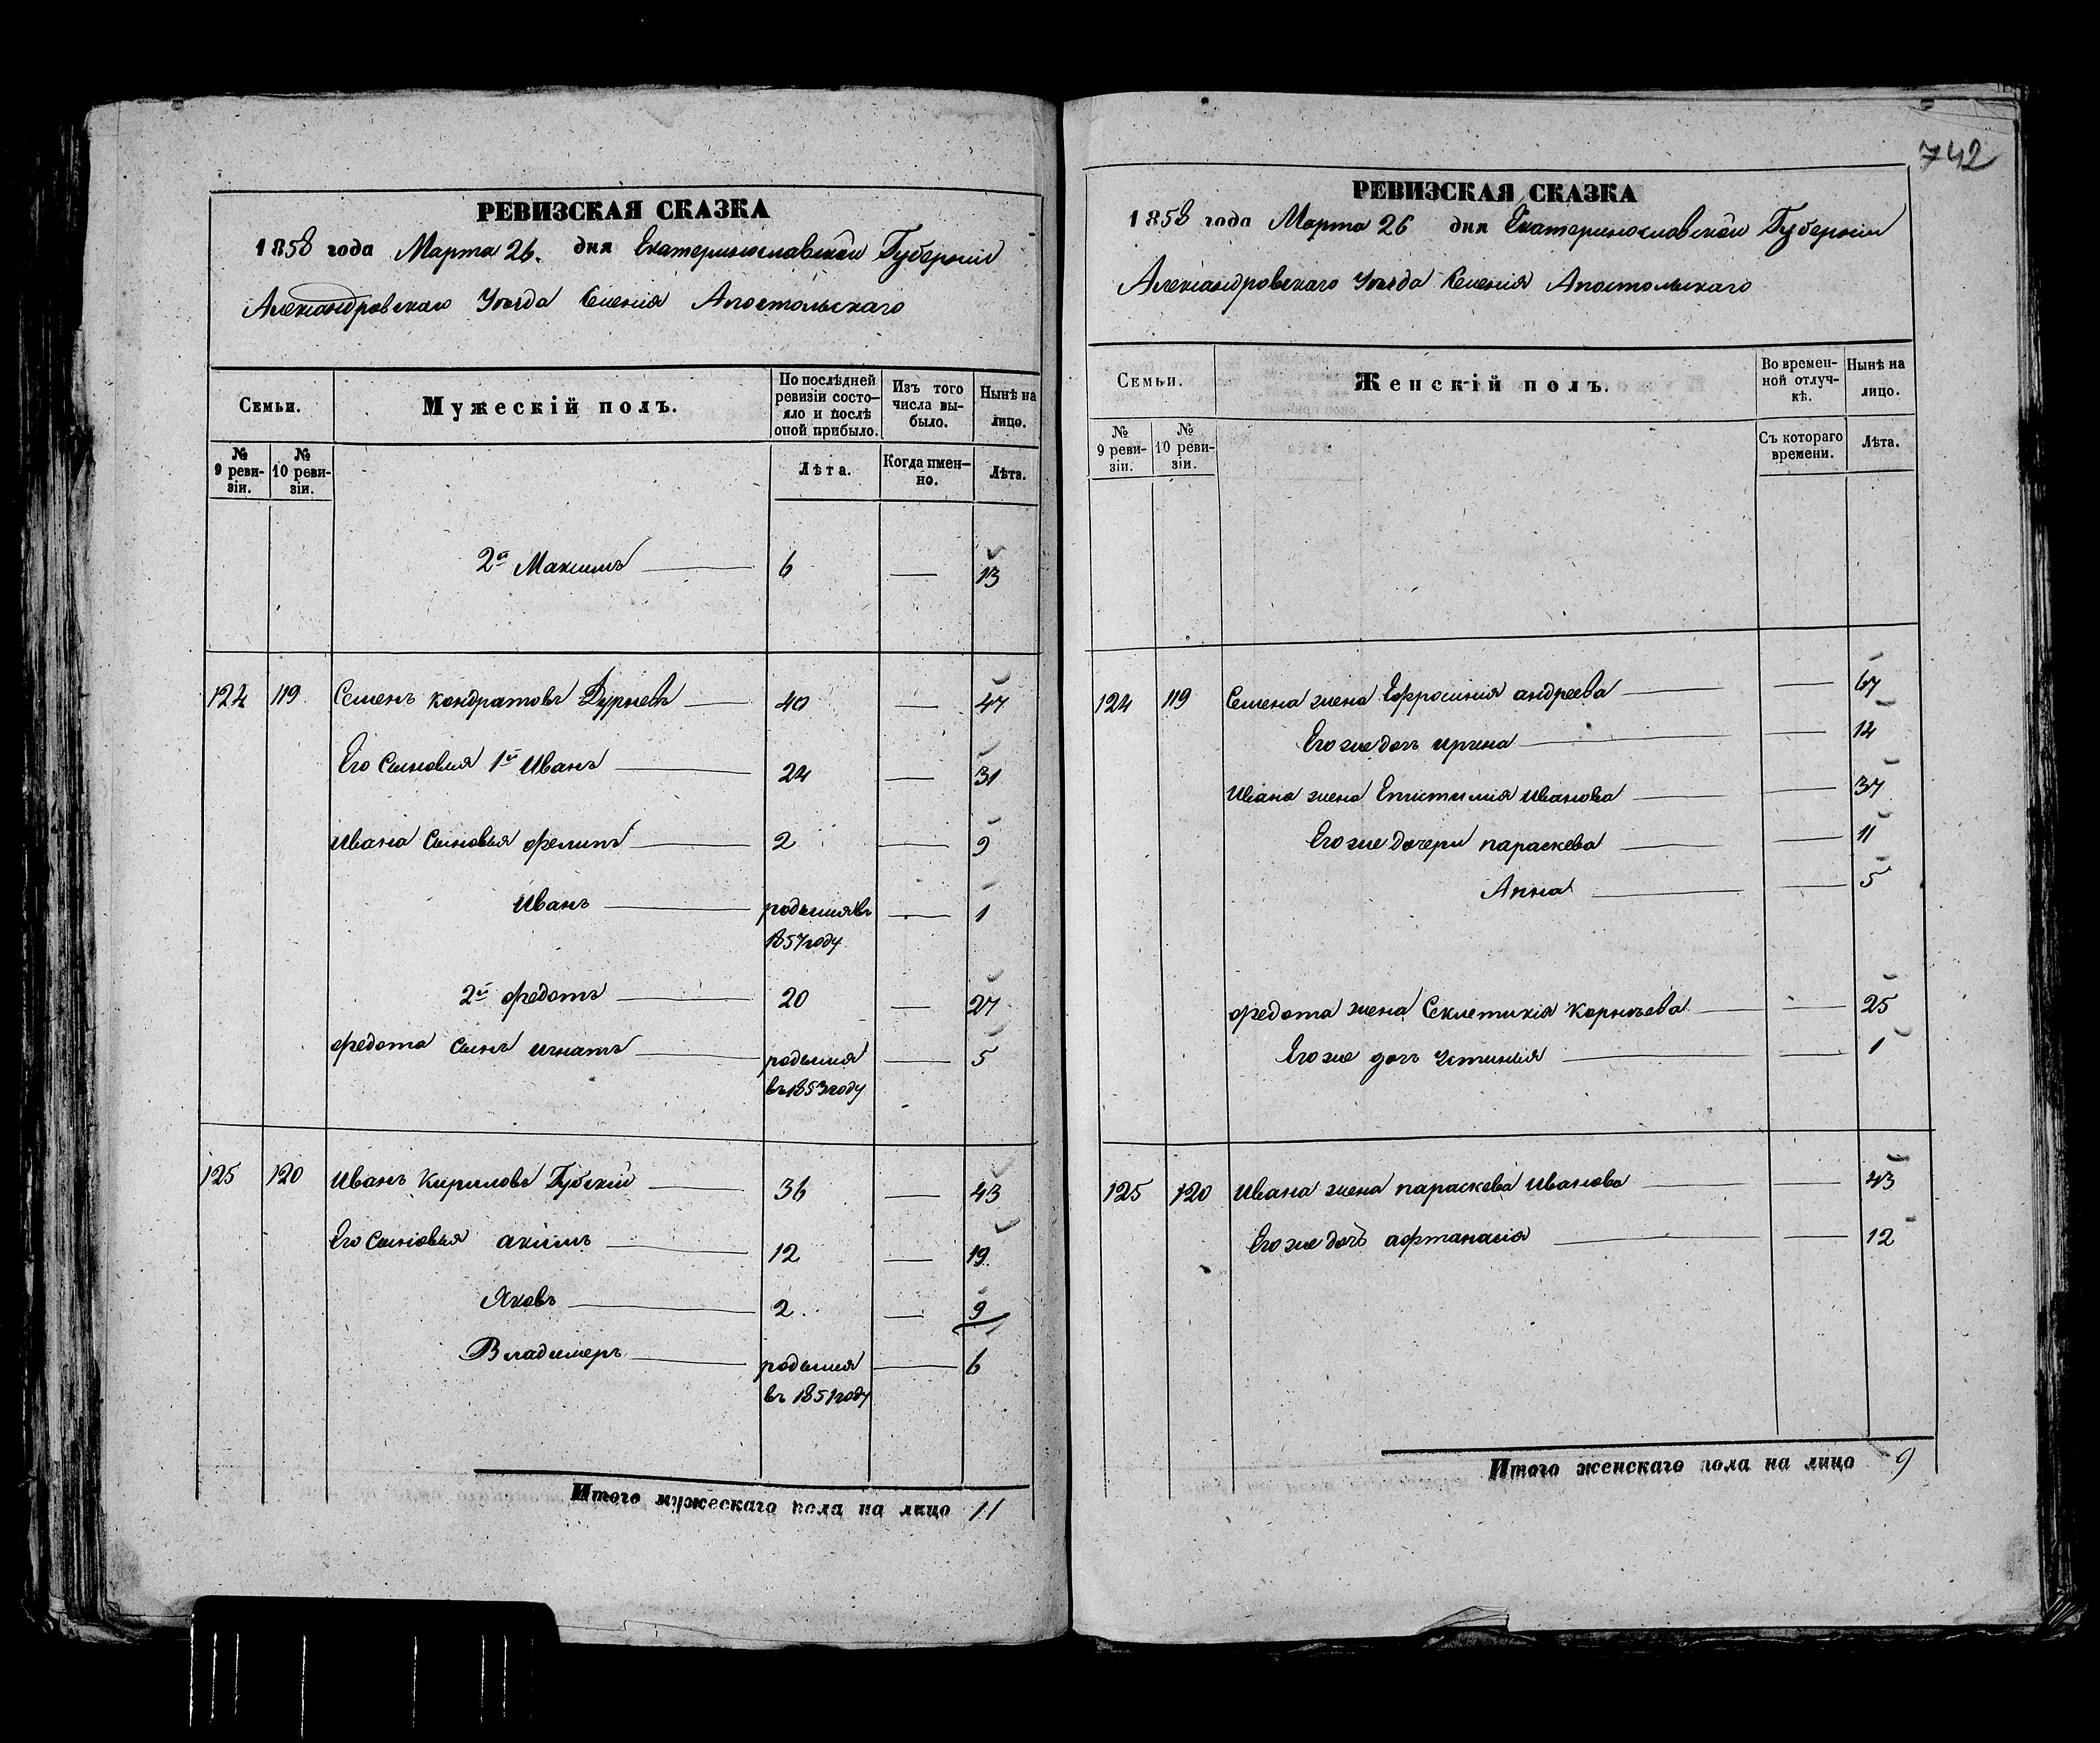 742
РЕВИЗСКАЯ СКАЗКА
1858 года Марта 26. дня Екатеринославской Губерніи
Александровскаго Уезда Селенія Апостольскаго
Семьи.
Мужескій полъ.
По послѣдней ревизіи состояло и послѣ оной прибыло.
Изъ того числа выбыло.
Нынѣ на лицо.
№ 9 ревизіи.
№ 10 ревизіи.
Лѣта.
Когда имен-но.
Лѣта.
2й Максимъ 6 — 13
124 119 Семенъ Кондратовъ Дурневъ 40 — 47
Его Сыновья 1й Иванъ 24 — 31
Ивана Сыновья филипъ 2 — 9
Иванъ родился въ — 1
1857 году
2й федотъ 20 — 27
федота Сынъ игнатъ родился — 5
въ 1853 году
125 120 Иванъ Кириловъ Губскій 36 — 43
Его Сыновья акимъ 12 — 19
Яковъ 2 — 9
Владимеръ родился — 6
въ 1851 году
Итого мужескаго пола на лицо 11
РЕВИЗСКАЯ СКАЗКА
1858 года Марта 26 дня Екатеринославской Губерніи
Александровскаго Уезда Селенія Апостольскаго
Семьи.
Женскій полъ.
Во времен-ной отлуч-кѣ.
Нынѣ на лицо.
№ 9 реви-зіи.
№ 10 реви-зіи.
Съ котораго времени.
Лѣта.
124 119 Семена жена Ефросинія андреева — 67
Его же дочь ирина — 14
Ивана жена Епистимія Иванова — 37
Его же дочери параскева — 11
Анна — 5
федота жена Секлетикія Корнѣева — 25
Его же дочь Устинія — 1
125 120 Ивана жена параскева Иванова — 43
Его же дочь афтанасія — 12
Итого женскаго пола на лицо 9